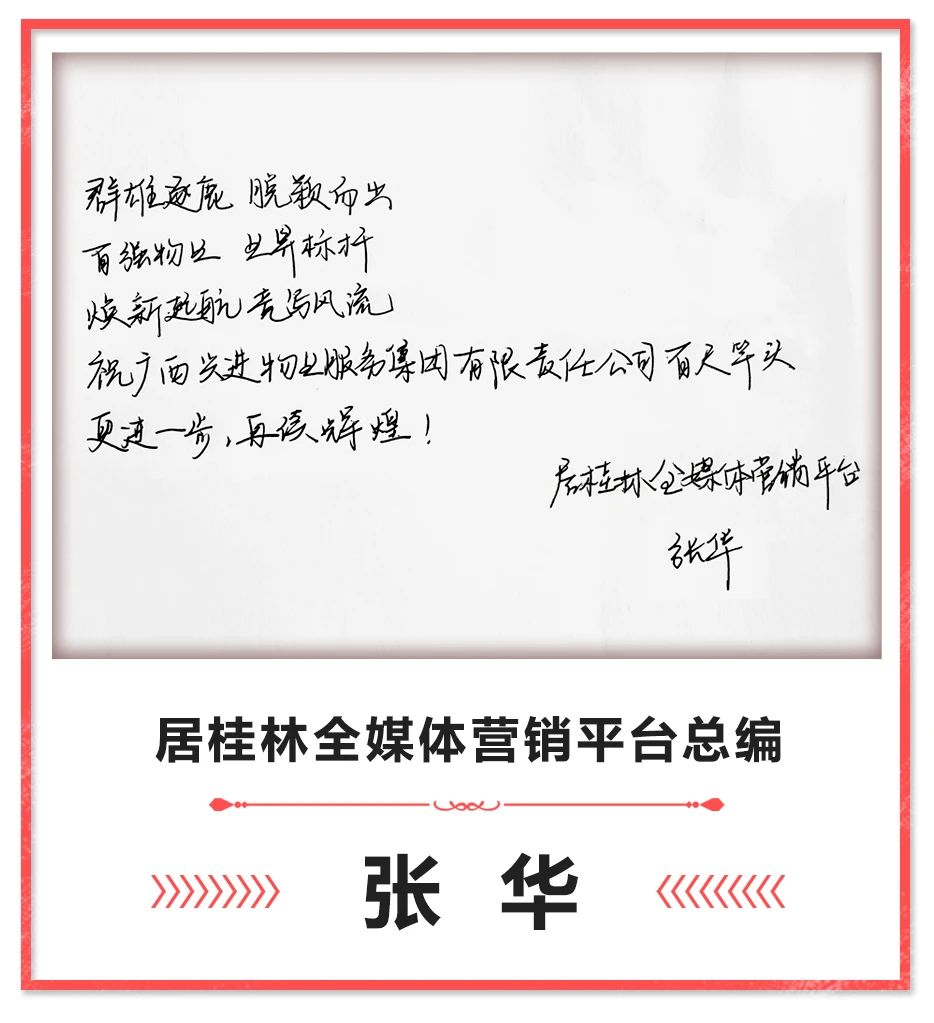 群雄逐鹿 脱颖而出
百强物业 业界标杆
焕新起航 竞写风流
祝广西兴进物业服务集团有限责任公司百尺竿头
更进一步,再续辉煌!
居桂林全媒体营销平台
张华
居桂林全媒体营销平台总编
张 华